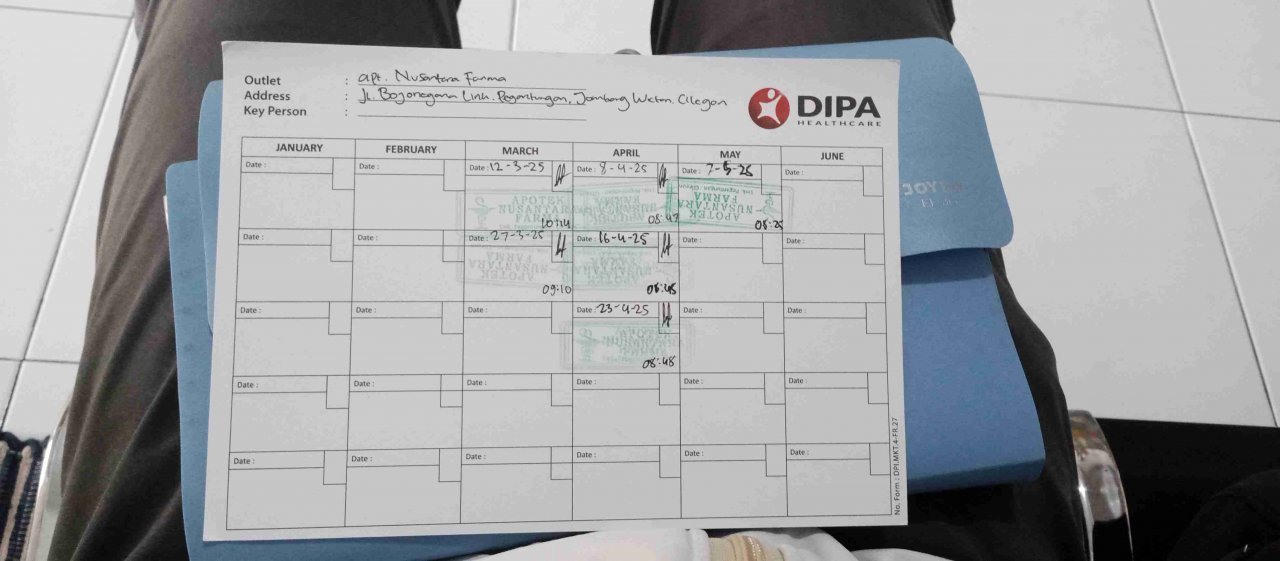 Outlet : apt. Nusantara Farma
Address : Jl. Bojonegara Link. Pegantungan, Jombang Wetan. Cilegon
Key Person :
DIPA
HEALTHCARE
JANUARY FEBRUARY MARCH APRIL MAY JUNE
Date : Date : Date : 12-3-25 Date : 8-4-25 Date : 7-5-25 Date :
APOTEK NUSANTARA FARMA
10:14 08:47 08:25
Date : Date : Date : 27-3-25 Date : 16-4-25 Date : Date :
APOTEK NUSANTARA FARMA
09:10 08:45
Date : Date : Date : Date : 23-4-25 Date : Date :
08:48
Date : Date : Date : Date : Date : Date :
Date : Date : Date : Date : Date : Date :
No. Form : DPI.MKT.4-FR.27